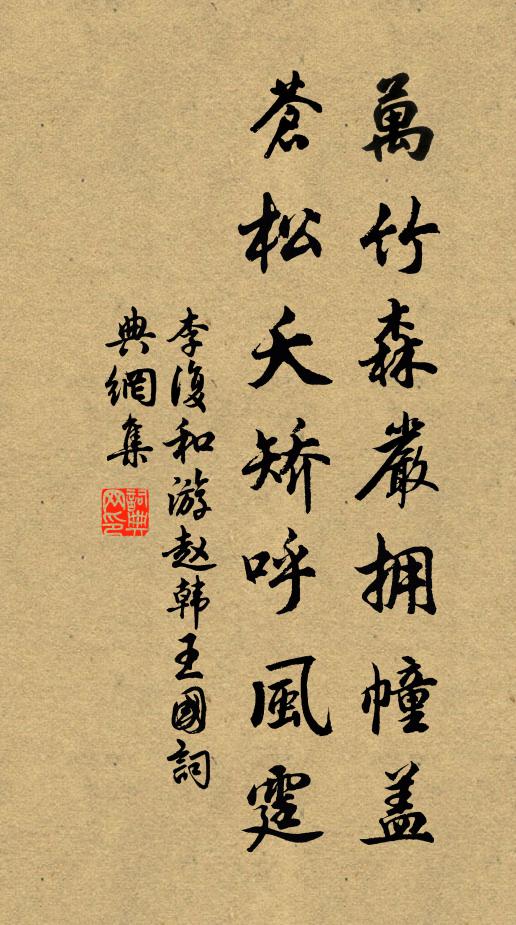 萬竹森嚴拥幢盖
蒼松夭矯呼風霆
李復和游赵韩王國詞
典網集
詞典
网印